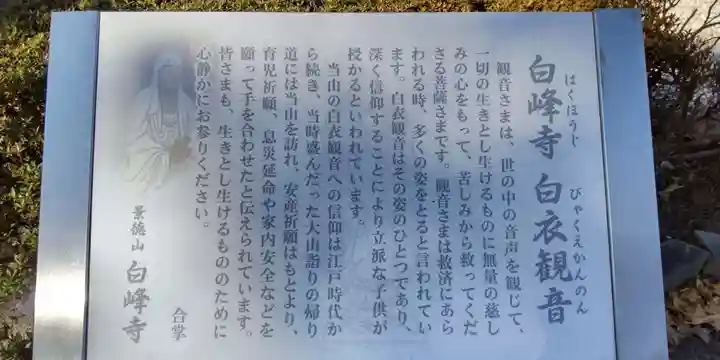 はくほうじ びゃくえかんのん
白峰寺 白衣観音
観音さまは、世の中の音声を観じて、
一切の生きとし生けるものに無量の慈し
みの心をもって、苦しみから救ってくだ
さる菩薩さまです。観音さまは救済にあら
われる時、多くの姿をとると言われてい
ます。白衣観音はその姿のひとつであり、
深く信仰することにより立派な子供が
授かるといわれています。
当山の白衣観音への信仰は江戸時代か
ら続き、当時盛んだった大山詣りの帰り
道には当山を訪れ、安産祈願はもとより、
育児祈願、息災延命や家内安全などを
願って手を合わせたと伝えられています。
皆さまも、生きとし生けるもののために
心静かにお参りください。
合掌
景徳山 白峰寺